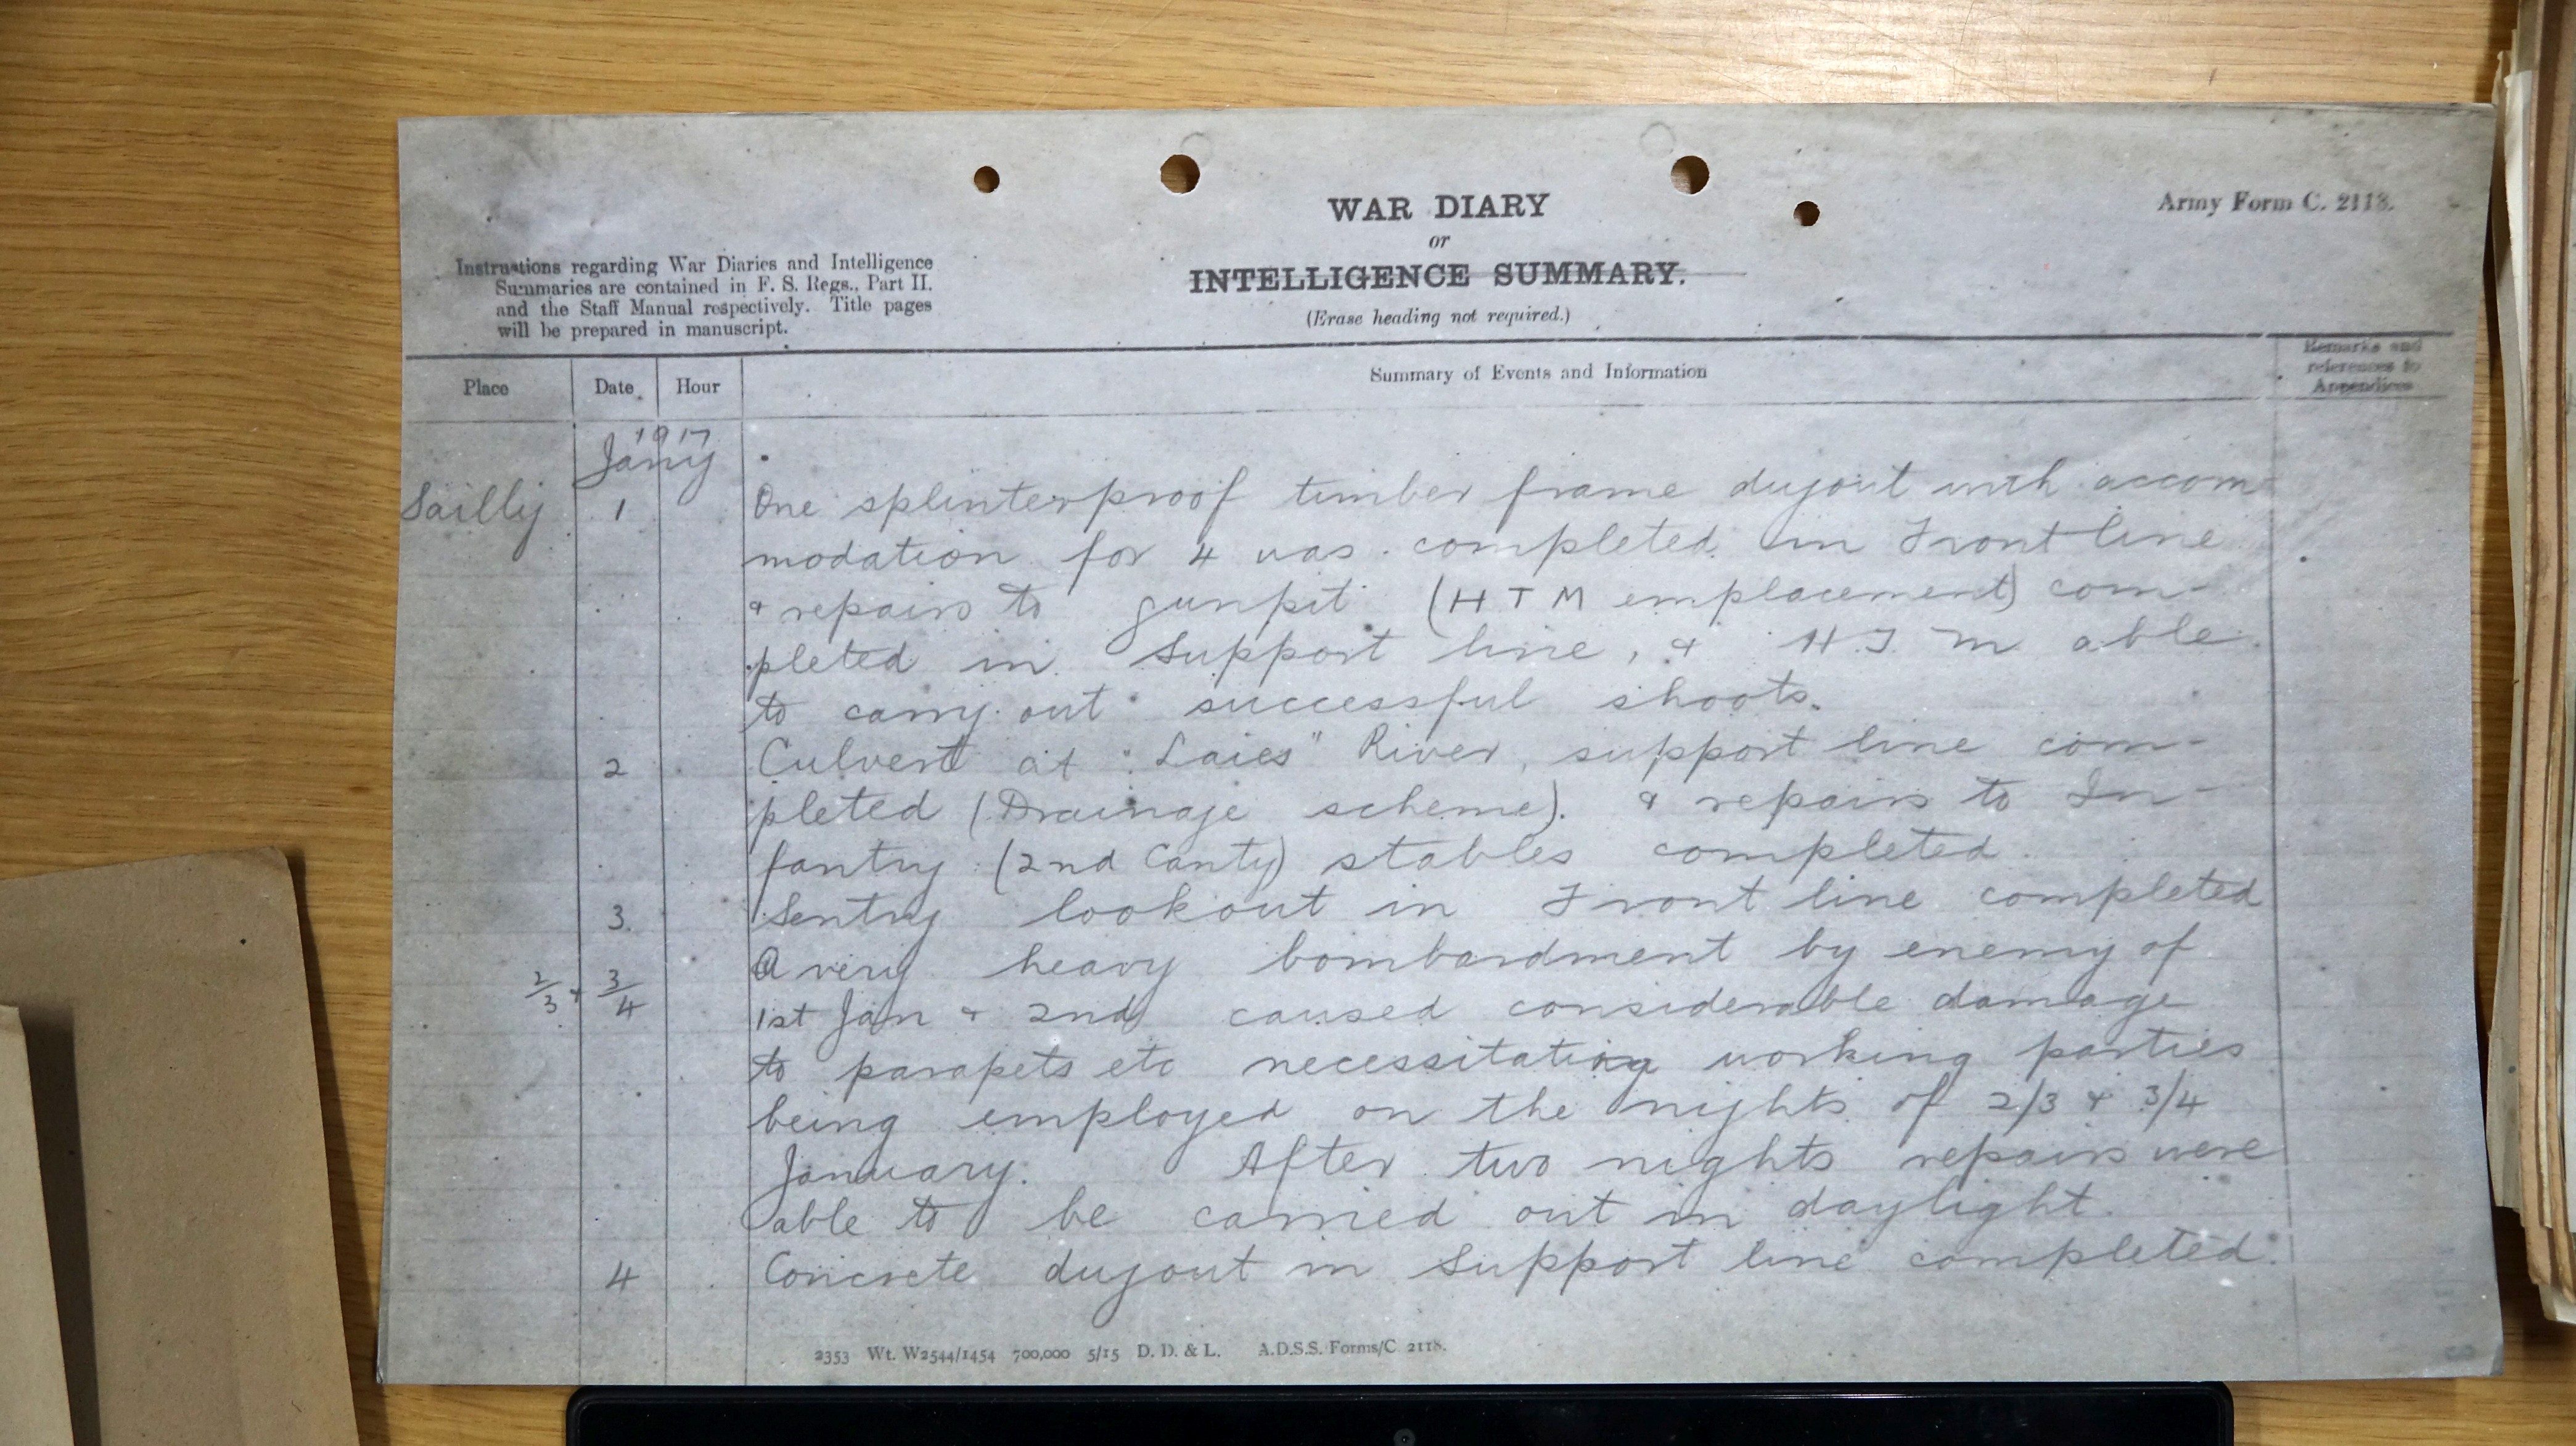 Army Form C. 2118.
WAR DIARY
or
INTELLIGENCE SUMMARY.
(Erase heading not required.)
Instructions regarding War Diaries and Intelligence
Summaries are contained in F. S. Regs., Part II.
and the Staff Manual respectively. Title pages
will be prepared in manuscript.
Place Date Hour Summary of Events and Information
Remarks and
references to
Appendices
1917
Jany
Sailly 1 One splinterproof timber frame dugout with accom-
modation for 4 was completed in Front line
& repairs to gunpit (HTM emplacement) com-
pleted in Support line, & H.T.M able
to carry out successful shoots.
2 Culvert at "Laies" River, support line com-
pleted (Drainage scheme). & repairs to In-
fantry (2nd Canty) stables completed
3. Sentry lookout in Front line completed
2/3 & 3/4 A very heavy bombardment by enemy of
1st Jan & 2nd caused considerable damage
to parapets etc necessitating working parties
being employed on the nights of 2/3 & 3/4
January. After two nights repairs were
able to be carried out in daylight.
4 Concrete dugout in Support line completed.
2353 Wt. W2544/1454 700,000 5/15 D. D. & L. A.D.S.S. Forms/C. 2118.